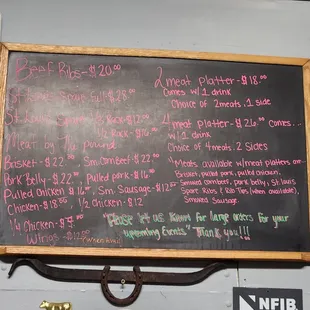 Beef Ribs - $20.00
St Louis Spare Full $28.00
St Louis Spare ½ Rack $12.00
½ Rack - $16
Meat by ½ pound
Brisket - $22.00 Sm. Cornbeef - $22.00
Pork Belly - $22.00 Pulled pork - $16
Pulled Chicken $16.00, Sm. Sausage - $12.00
Chicken - $18.00 ½ Chicken $12
½ Chicken - $
W/ribs - $12.00
2 meat platter - $18.00
Comes w/1 drink
Choice of 2 meats, 1 side
4 meat platter - $26.00 comes...
w/1 drink
Choice of 4 meats 2 Sides
*Meats available w/meat platters are -
Brisket, pulled pork, pulled chicken,
Smoked cornbeef, pork belly, St. Louis
Spare Ribs, & Rib Tips (when available),
Smoked Sausage.
"Please let us know for large orders for your
upcoming Events." Thank you!!!
NFIB